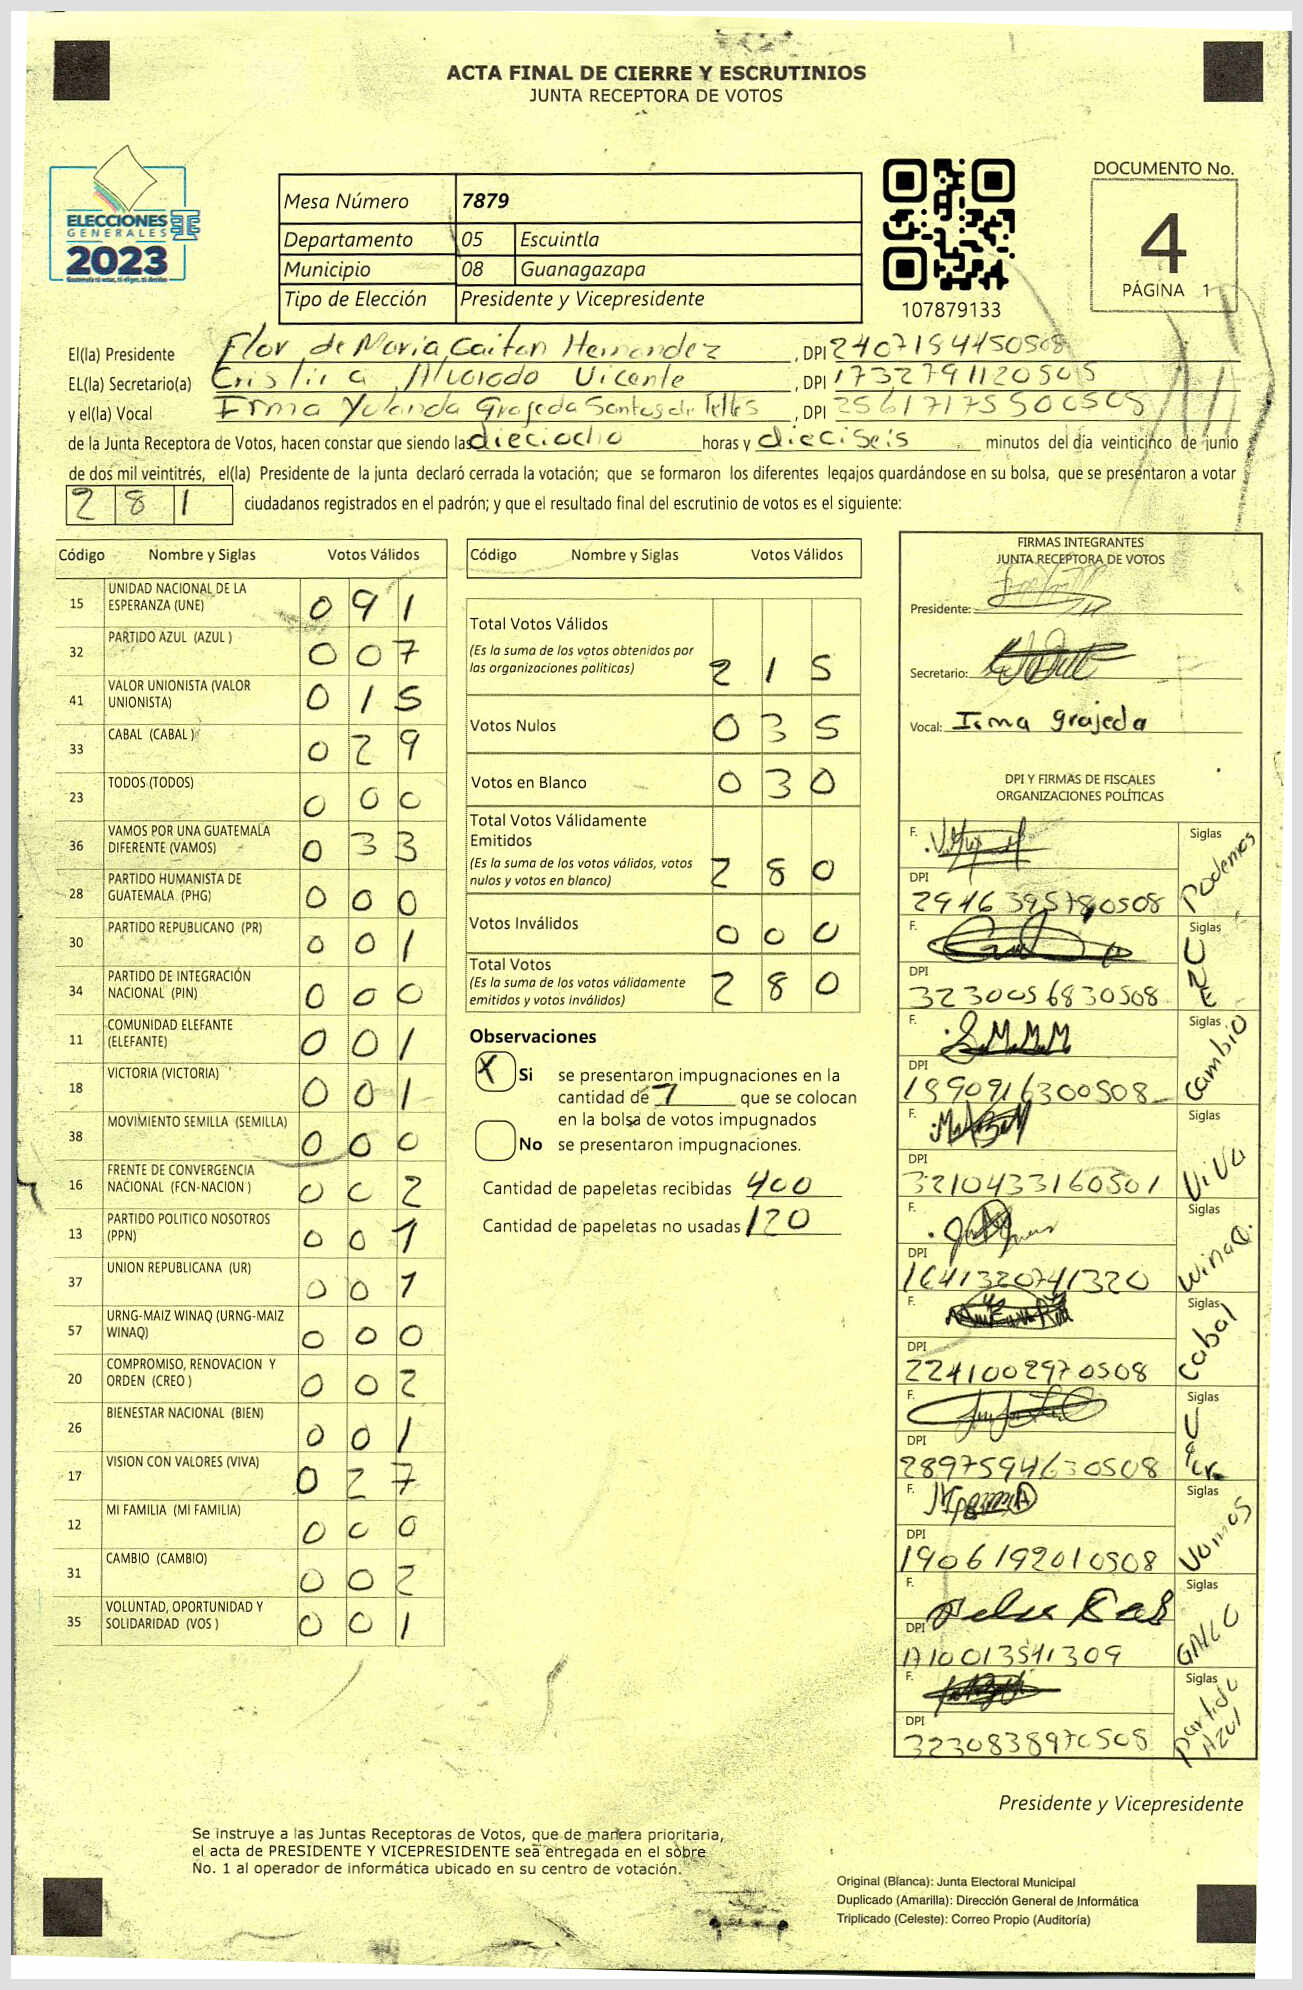 ACTA FINAL DE CIERRE Y ESCRUTINIOS
JUNTA RECEPTORA DE VOTOS
ELECCIONES
GENERALES
2023
Mesa Número 7879
Departamento 05 Escuintla
Municipio 08 Guanagazapa
Tipo de Elección Presidente y Vicepresidente
107879133
DOCUMENTO No.
4
PÁGINA 1
El(la) Presidente Flor de Maria Gaitan Hernandez, DPI 2407154450508
EL(la) Secretario(a) Cristina Alvarado Vicente, DPI 1732791120505
y el(la) Vocal Irma Yolanda Grajeda Santos de Telles, DPI 25617175500508
de la Junta Receptora de Votos, hacen constar que siendo las dieciocho horas y dieciseis minutos del día veinticinco de junio
de dos mil veintitrés, el(la) Presidente de la junta declaró cerrada la votación; que se formaron los diferentes legajos quardándose en su bolsa, que se presentaron a votar
281 ciudadanos registrados en el padrón; y que el resultado final del escrutinio de votos es el siguiente:
Código Nombre y Siglas Votos Válidos
15 UNIDAD NACIONAL DE LA ESPERANZA (UNE) 091
32 PARTIDO AZUL (AZUL ) 007
41 VALOR UNIONISTA (VALOR UNIONISTA) 015
33 CABAL (CABAL ) 029
23 TODOS (TODOS) 000
36 VAMOS POR UNA GUATEMALA DIFERENTE (VAMOS) 033
28 PARTIDO HUMANISTA DE GUATEMALA (PHG) 000
30 PARTIDO REPUBLICANO (PR) 001
34 PARTIDO DE INTEGRACIÓN NACIONAL (PIN) 000
11 COMUNIDAD ELEFANTE (ELEFANTE) 001
18 VICTORIA (VICTORIA) 001
38 MOVIMIENTO SEMILLA (SEMILLA) 000
16 FRENTE DE CONVERGENCIA NACIONAL (FCN-NACION ) 002
13 PARTIDO POLITICO NOSOTROS (PPN) 001
37 UNION REPUBLICANA (UR) 001
57 URNG-MAIZ WINAQ (URNG-MAIZ WINAQ) 000
20 COMPROMISO, RENOVACION Y ORDEN (CREO ) 002
26 BIENESTAR NACIONAL (BIEN) 001
17 VISION CON VALORES (VIVA) 027
12 MI FAMILIA (MI FAMILIA) 000
31 CAMBIO (CAMBIO) 002
35 VOLUNTAD, OPORTUNIDAD Y SOLIDARIDAD (VOS ) 001
Código Nombre y Siglas Votos Válidos
Total Votos Válidos 215
(Es la suma de los votos obtenidos por
las organizaciones políticas)
Votos Nulos 035
Votos en Blanco 030
Total Votos Válidamente
Emitidos 280
(Es la suma de los votos válidos, votos
nulos y votos en blanco)
Votos Inválidos 000
Total Votos 280
(Es la suma de los votos válidamente
emitidos y votos inválidos)
Observaciones
X Si se presentaron impugnaciones en la
cantidad de 7 que se colocan
en la bolsa de votos impugnados
No se presentaron impugnaciones.
Cantidad de papeletas recibidas 400
Cantidad de papeletas no usadas 120
FIRMAS INTEGRANTES
JUNTA RECEPTORA DE VOTOS
Presidente:
Secretario:
Vocal: Irma grajeda
DPI Y FIRMAS DE FISCALES
ORGANIZACIONES POLÍTICAS
F. Siglas Podemos
DPI 2946395780508
F. Siglas UNE
DPI 3230056830508
F. Siglas Cambio
DPI 1890916300508
F. Siglas ViVa
DPI 3210433160501
F. Siglas WinaQ.
DPI 1641320741320
F. Siglas Cabal
DPI 2241002970508
F. Siglas
DPI 2897594630508
F. Siglas Vamos
DPI 1906192010508
F. Siglas GALLO
DPI A10013541309
F. Siglas partido Azul
DPI 3230838970508
Presidente y Vicepresidente
Se instruye a las Juntas Receptoras de Votos, que de manera prioritaria,
el acta de PRESIDENTE Y VICEPRESIDENTE sea entregada en el sobre
No. 1 al operador de informática ubicado en su centro de votación.
Original (Blanca): Junta Electoral Municipal
Duplicado (Amarilla): Dirección General de Informática
Triplicado (Celeste): Correo Propio (Auditoría)